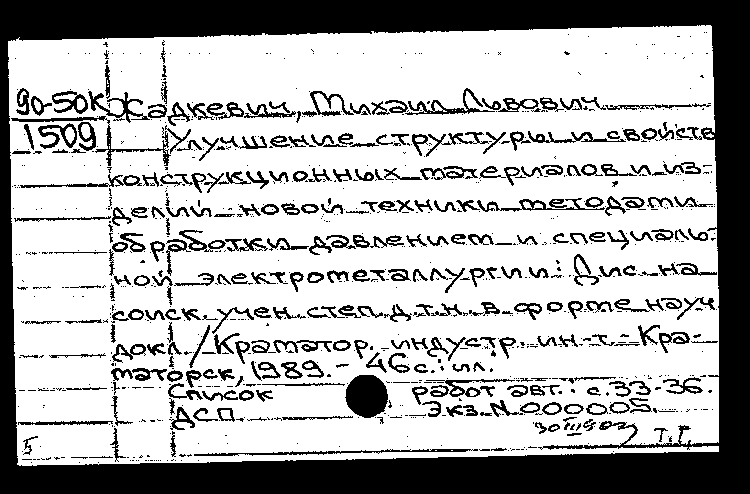 90-50К Жадкевич, Михаил Львович
1509 Улучшение структуры и свойств
конструкционных материалов и из-
делий новой техники методами
обработки давлением и специаль-
ной электрометаллургии: Дис. на
соиск. учен. степ. д.т.н. в форме науч
докл. / Краматор. индустр. ин-т. - Кра-
маторск, 1989. - 46 с.: ил.
Список работ авт.: с. 33-36.
ДСП Экз. N 000005.
5 Т.Г.